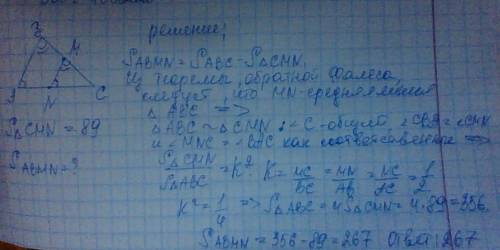 решение;
S ABMN = S ABC - S△CMN.
Из теоремы, обратной Фалеса,
следует, что MN-средняя линия
△ABC =>
△ABC ~ △CMN: ∠C-общий, ∠CBA = ∠CMN
и ∠MNC = ∠BAC как соответственные =>
S△CMN / S△ABC = K². K = MC/BC = MN/AB = NC/AC = 1/2
K² = 1/4 => S△ABC = 4S△CMN = 4·89 = 356.
S ABMN = 356 - 89 = 267 Ответ: 267
B
M
N
C
S△CMN = 89
S ABMN = ?